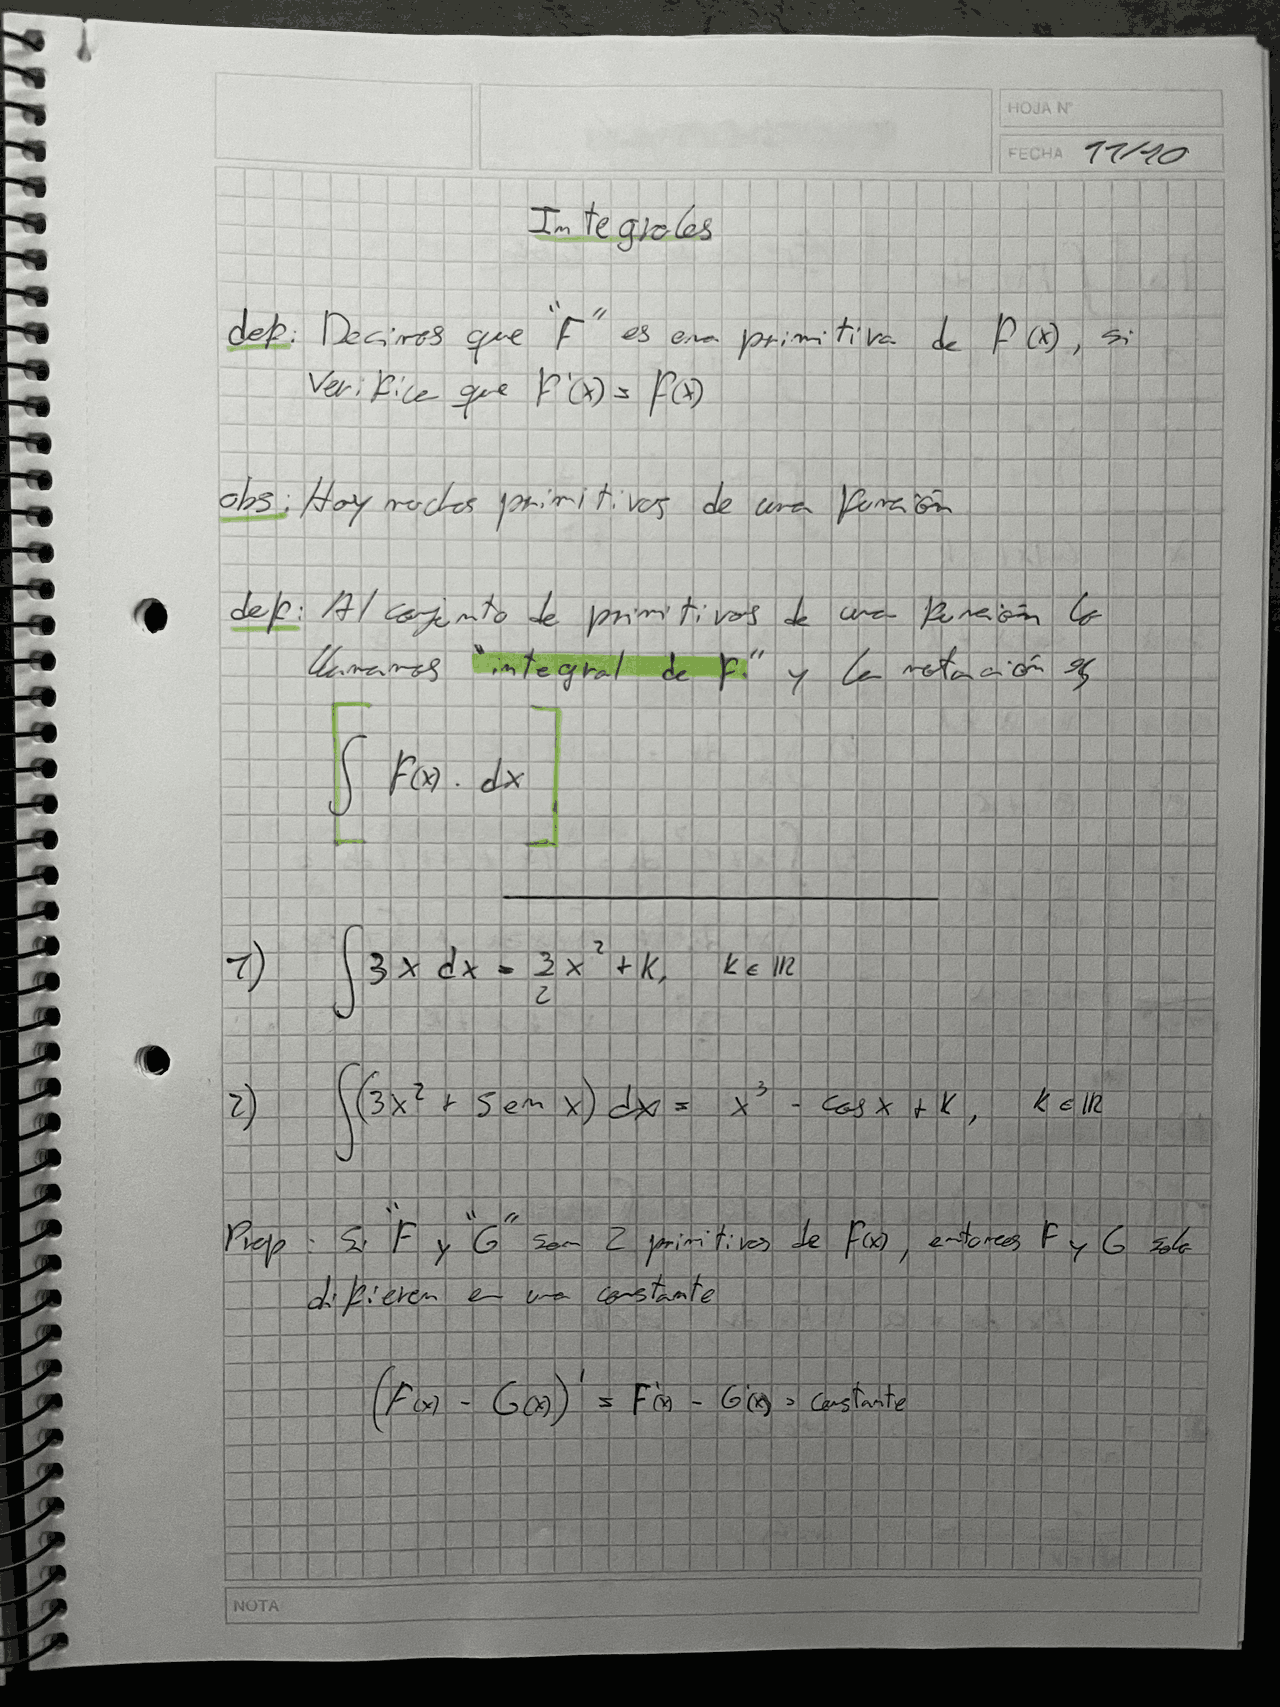 HOJA N°
FECHA 11/10
Integrales
def: Decimos que "F" es una primitiva de f(x), si
verifica que F'(x) = f(x)
obs: Hay muchas primitivas de una función
def: Al conjunto de primitivas de una función la
llamamos "integral de f." y la notación es
∫ f(x) . dx
1) ∫ 3x dx = 3/2 x² + K, K ∈ ℝ
2) ∫ (3x² + sen x) dx = x³ - cos x + K, K ∈ ℝ
Prop. Si "F y "G" son 2 primitivas de f(x), entonces F y G solo
difieren en una constante
(F(x) - G(x))' = F'(x) - G'(x) = constante
NOTA